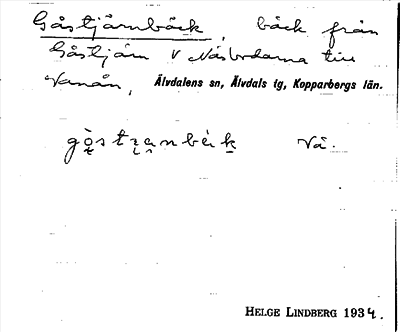 Gåstjärnbäck, bäck från
Gåstjärn V Näsbodarna till
Vanån, Älvdalens sn, Älvdals tg, Kopparbergs län.
Vå.
HELGE LINDBERG 1934.